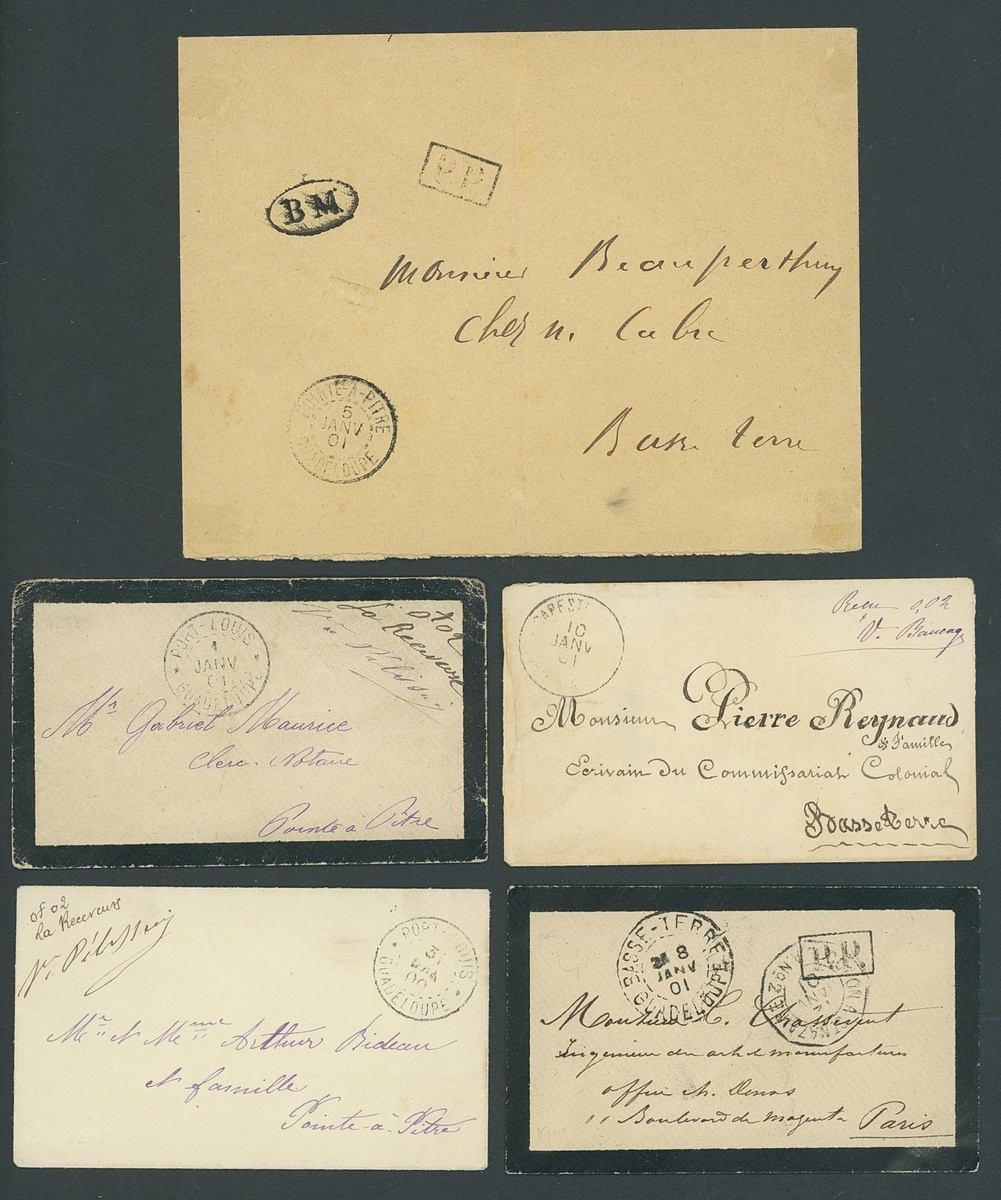 P.P
BM
Monsieur Beauperthuy
Chez M. Cabre
Basse Terre
POINTE-A-PITRE
5
JANV
01
GUADELOUPE
PORT-LOUIS
1
JANV
01
GUADELOUPE
0f 02
La Receveuse
Vve Pélissié
Mr Gabriel Maurice
Clerc. Notaire
Pointe à Pitre
CAPEST
10
JANV
01
0,02
Monsieur Pierre Reynaud
& Famille
Ecrivain du Commissariat Colonial
Basse Terre
0f 02
La Receveuse
PORT-LOUIS
31
00
GUADELOUPE
Mr et Mme Arthur Bideau
et famille
Pointe-à-Pitre
BASSE-TERRE
8
JANV
01
GUADELOUPE
P.P.
Monsieur C. Chassevent
Ingénieur des arts & manufactures
11 Boulevard de Magenta Paris